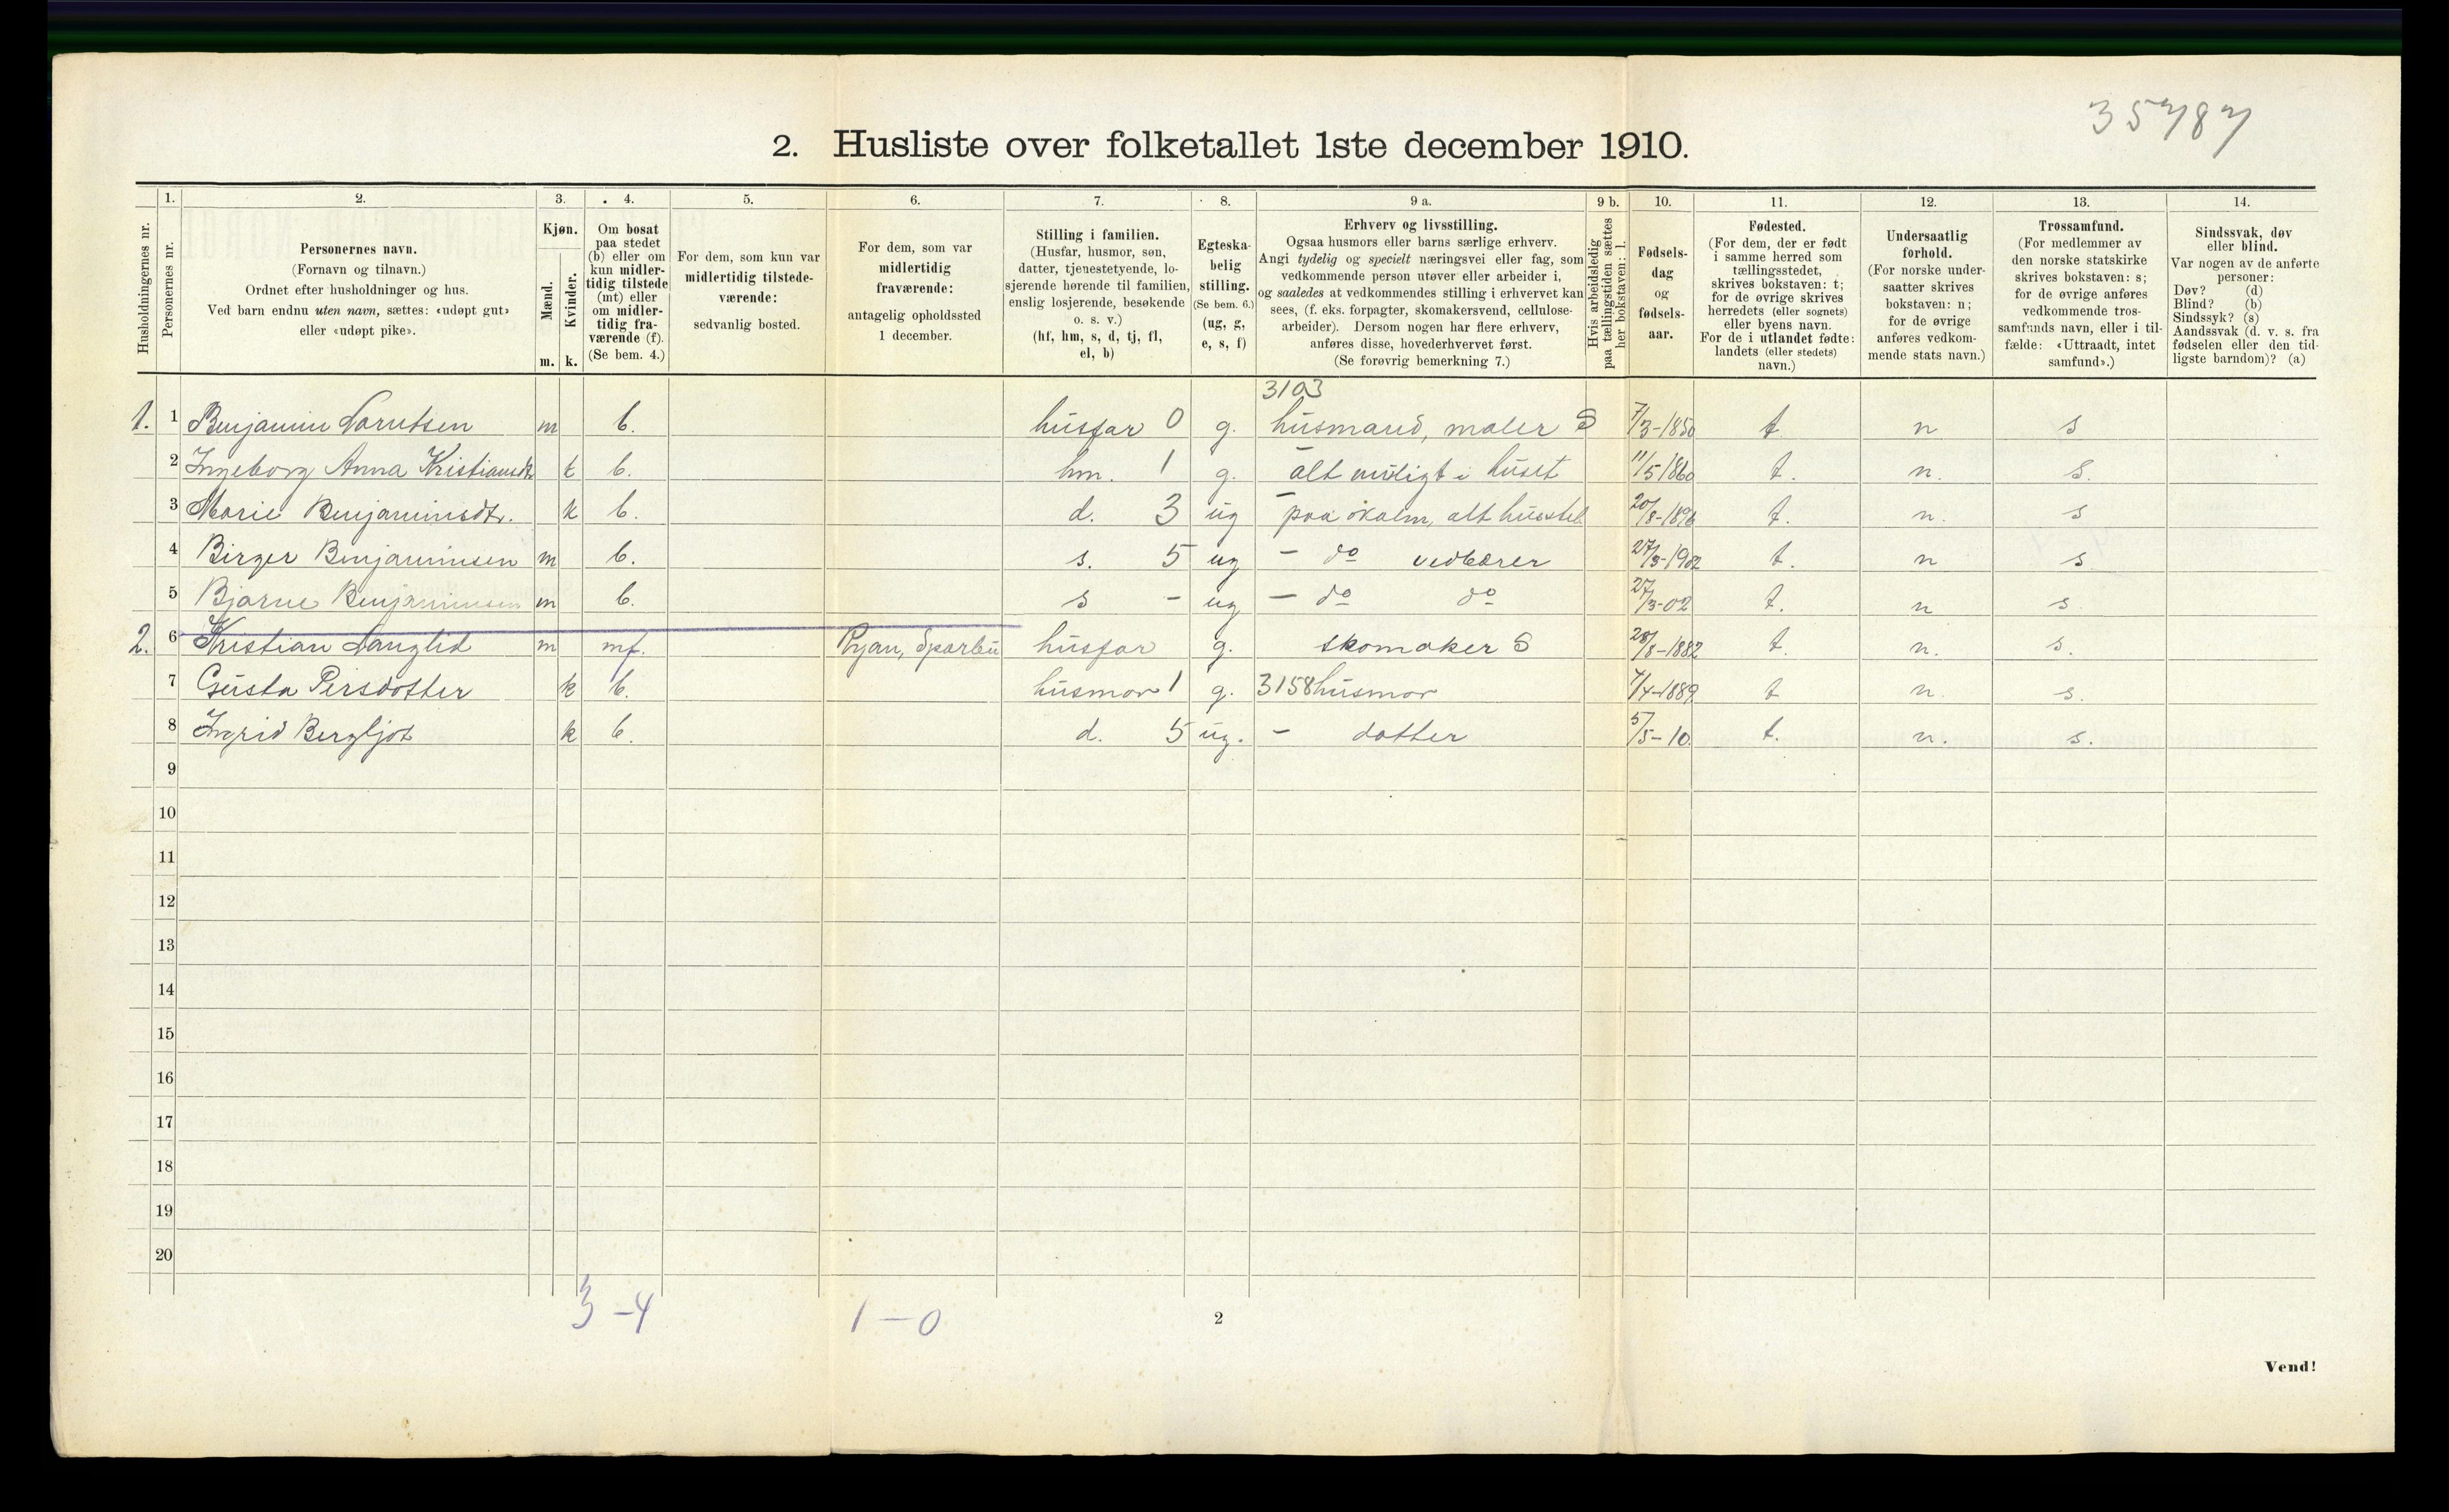 35787
2. Husliste over folketallet 1ste december 1910.
Husholdningernes nr.
1. Personernes nr.
2. Personernes navn. (Fornavn og tilnavn.) Ordnet efter husholdninger og hus. Ved barn endnu uten navn, sættes: «udøpt gut» eller «udøpt pike».
3. Kjøn. Mænd. m. Kvinder. k.
4. Om bosat paa stedet (b) eller om kun midlertidig tilstede (mt) eller om midlertidig fraværende (f). (Se bem. 4.)
5. For dem, som kun var midlertidig tilstedeværende: sedvanlig bosted.
6. For dem, som var midlertidig fraværende: antagelig opholdssted 1 december.
7. Stilling i familien. (Husfar, husmor, søn, datter, tjenestetyende, losjerende hørende til familien, enslig losjerende, besøkende o. s. v.) (hf, hm, s, d, tj, fl, el, b)
8. Egteskabelig stilling. (Se bem. 6.) (ug, g, e, s, f)
9 a. Erhverv og livsstilling. Ogsaa husmors eller barns særlige erhverv. Angi tydelig og specielt næringsvei eller fag, som vedkommende person utøver eller arbeider i, og saaledes at vedkommendes stilling i erhvervet kan sees, (f. eks. forpagter, skomakersvend, cellulosearbeider). Dersom nogen har flere erhverv, anføres disse, hovederhvervet først. (Se forøvrig bemerkning 7.)
9 b. Hvis arbeidsledig paa tællingstiden sættes her bokstaven: l.
10. Fødselsdag og fødselsaar.
11. Fødested. (For dem, der er født i samme herred som tællingsstedet, skrives bokstaven: t; for de øvrige skrives herredets (eller sognets) eller byens navn. For de i utlandet fødte: landets (eller stedets) navn.)
12. Undersaatlig forhold. (For norske undersaatter skrives bokstaven: n; for de øvrige anføres vedkommende stats navn.)
13. Trossamfund. (For medlemmer av den norske statskirke skrives bokstaven: s; for de øvrige anføres vedkommende trossamfunds navn, eller i tilfælde: «Uttraadt, intet samfund».)
14. Sindssvak, døv eller blind. Var nogen av de anførte personer: Døv? (d) Blind? (b) Sindssyk? (s) Aandssvak (d. v. s. fra fødselen eller den tidligste barndom)? (a)
3103
1. 1 Benjamin Larutsen m b. husfar 0 g. husmand, maler S 7/3-1850 t n s
2 Ingeborg Anna Kristiansdtr k b. hm. 1 g. alt muligt i huset 11/5 1860 t. n. s.
3 Marie Benjaminsdtr. k b. d. 3 ug - paa skolen, alt husstel. 20/8-1896 t. n. s
4 Birger Benjaminsen m b. s. 5 ug - do vedbærer 27/3-1902 t. n s
5 Bjarne Benjaminsen m b. s - ug - do do 27/3-02 t. n s
2. 6 Kristian Langlid m mf. Ryan, Sparbu husfar g. skomaker S 28/8-1882 t. n. s.
7 Gusta Persdotter k b. husmor 1 g. 3158 husmor 7/4-1889 t n. s.
8 Ingrid Bergljot k b. d. 5 ug. - datter 5/5-10 t. n. s.
9
10
11
12
13
14
15
16
17
18
19
20
3-4 1-0
2
Vend!